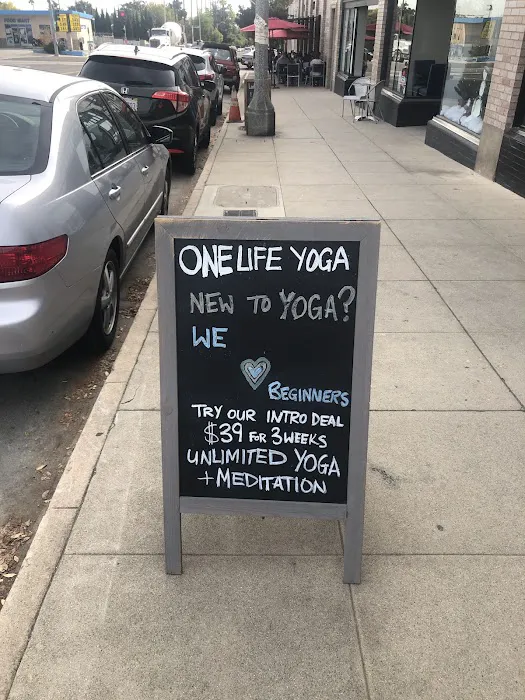 ONE LIFE YOGA
NEW TO YOGA?
WE
BEGINNERS
TRY OUR INTRO DEAL
$39 FOR 3 WEEKS
UNLIMITED YOGA
+ MEDITATION